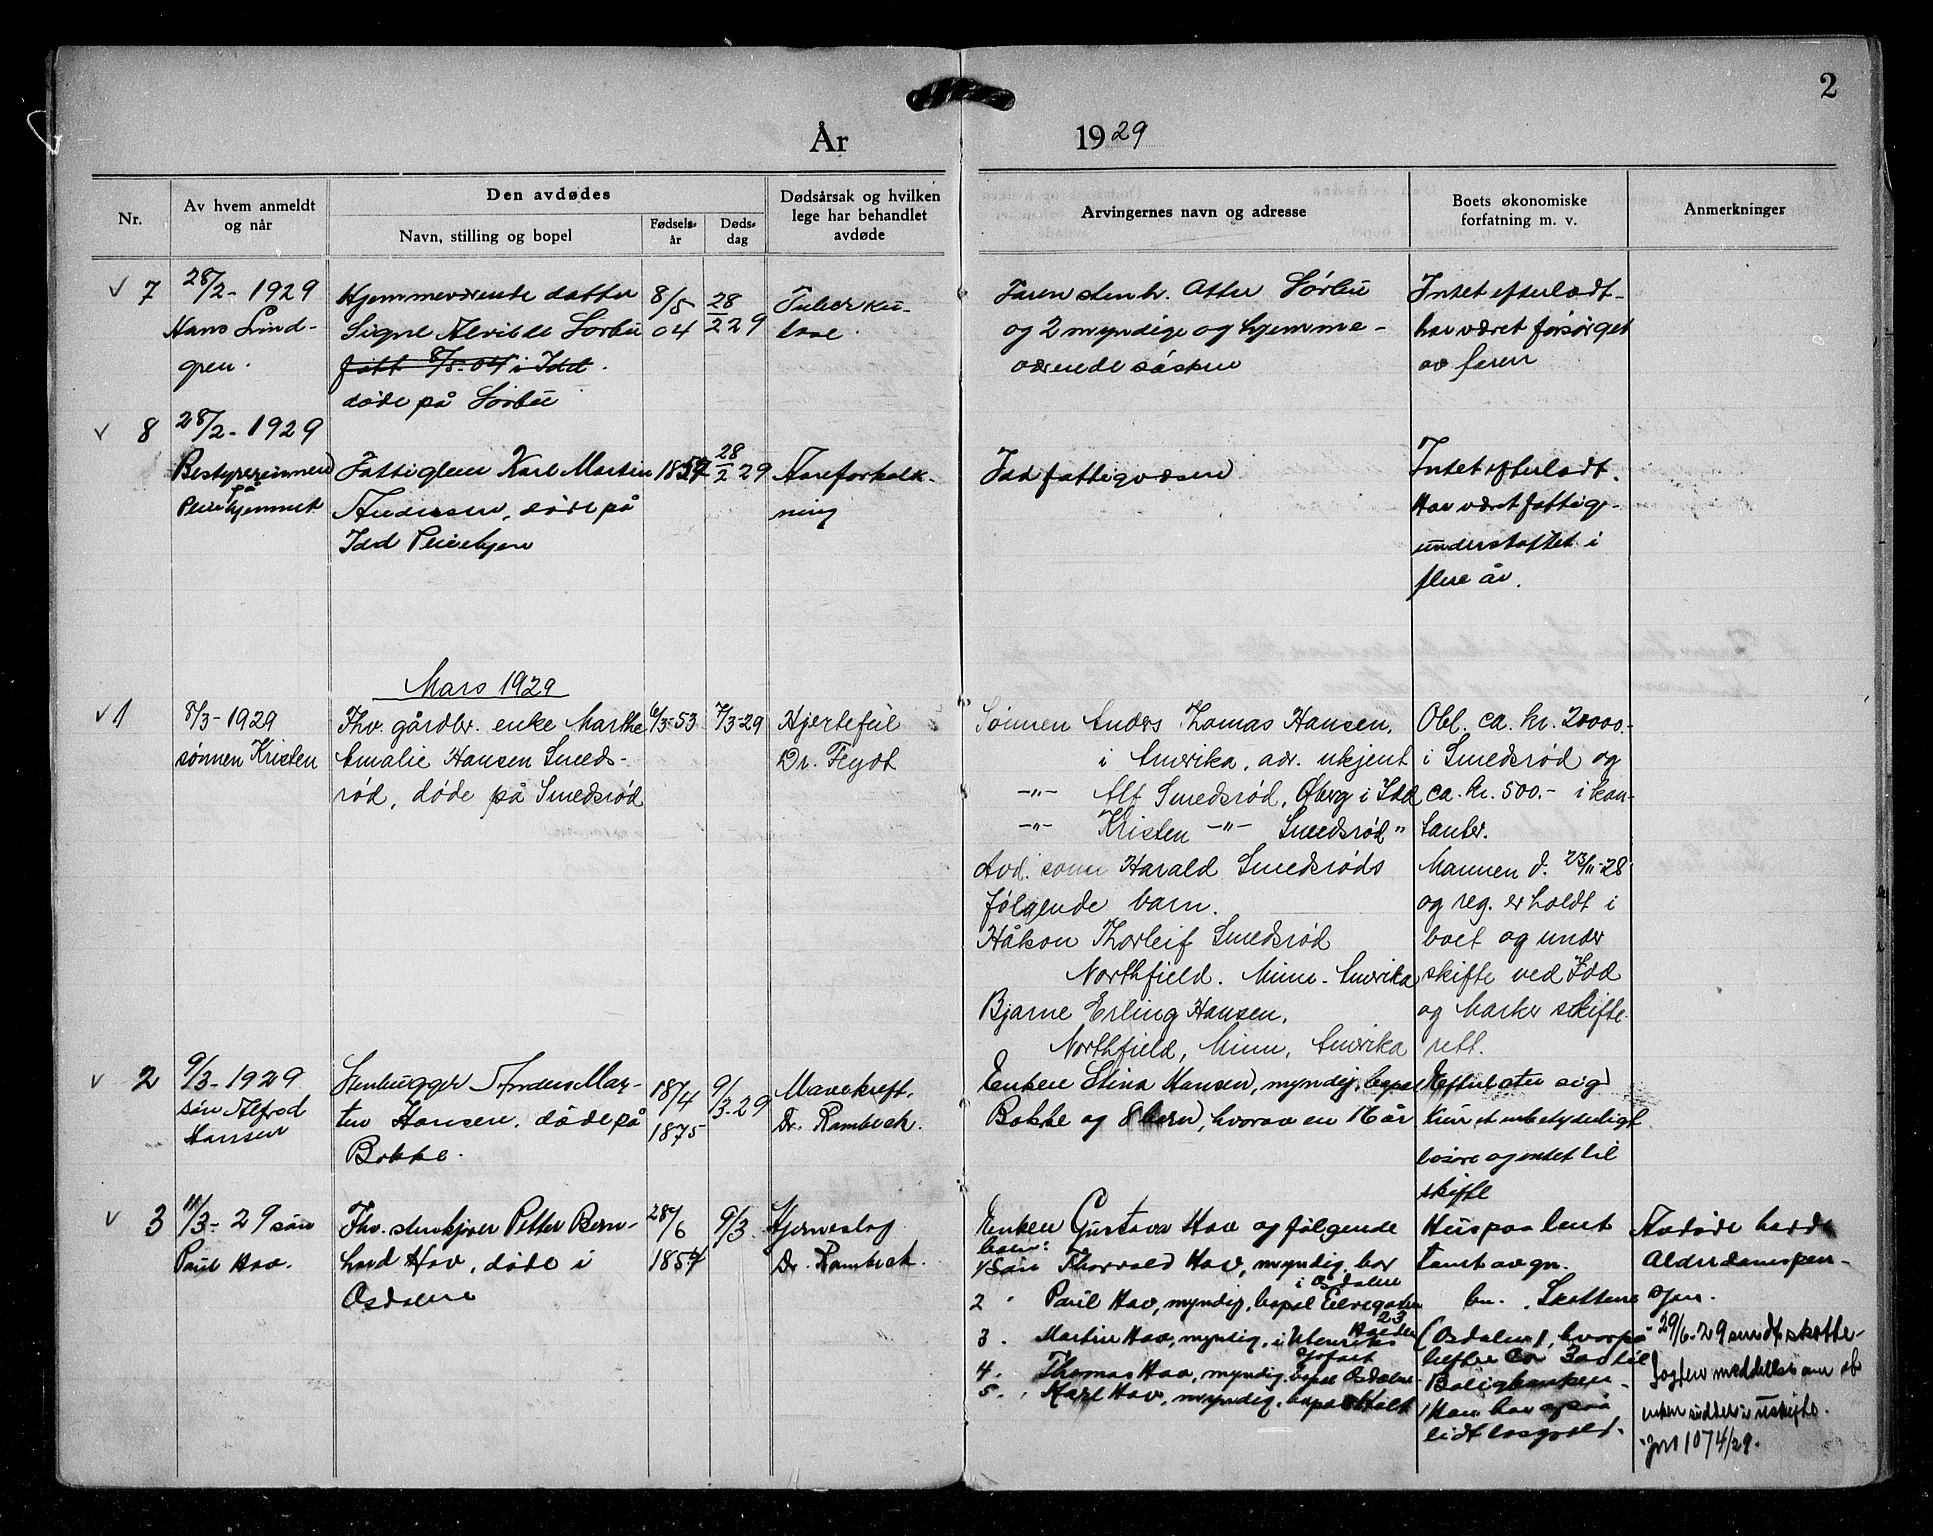 2
År 1929
Nr.
Av hvem anmeldt
og når
Den avdødes
Navn, stilling og bopel
Fødsels-
år
Døds-
dag
Dødsårsak og hvilken
lege har behandlet
avdøde
Arvingernes navn og adresse
Boets økonomiske
forfatning m. v.
Anmerkninger
7
28/2 - 1929
Hans Lind-
gren.
Hjemmeværende datter
Signe Alvilde Sørbu
født 8/5-04 i Idd.
døde på Sørbu
8/5
04
28/2 29
Tuberku-
lose.
Faren stenh. Otter Sørbu
og 2 myndige og hjemme-
værende søsken
Intet efterladt-
har været forsørget
av faren
8
28/2 - 1929
Bestyrerinnen
på
Pleiehjemmet
Fattiglem Karl Martin
Andersen, døde på
Idd Pleiehjem
1857
28/2 29
Aareforkalk-
ning
Idd fattigvæsen
Intet efterladt.
Har været fattig-
understøttet i
flere år.
Mars 1929
1
8/3 - 1929
sønnen Kristen
Fhv. gårdbr. enke Marthe
Amalie Hansen Smeds-
rød, døde på Smedsrød
6/3-53
7/3-29
Hjertefeil
Dr. Feydt
Sønnen Anders Thomas Hansen,
i Amerika, adr. ukjent
-"- Alf Smedsrød, Øberg i Idd
-"- Kristen -"- Smedsrød "
Avd. sønn Harald Smedsrøds
følgende barn.
Håkon Thorleif Smedsrød
Northfield. Minn. Amerika
Bjarne Erling Hansen,
Northfield, Minn, Amerika
Obl. ca. kr. 20000.-
i Smedsrød og
ca. kr. 500.- i kon-
tanter.
Mannen d. 23/11-28
og reg. er holdt i
boet og under
skifte ved Idd
og Marker skifte-
rett.
2
9/3 - 1929
søn Alfred
Hansen
Stenhugger Anders Mar-
tin Hansen, døde på
Bakke.
18/4
1875
9/3-29
Mavekreft.
Dr. Rambeck.
Enken Stina Hansen, myndig, bopæl
Bakke og 8 barn, hvorav en 16 år
Efterlater sig
kun et ubetydeligt
løsøre og intet til
skifte
3
11/3 - 29 søn
Paul Hov.
Fhv. stenhjører Petter Bern-
hard Hov, døde i
Osdalen
28/6
1857
9/3.
Hjerneslag
Dr. Rambeck.
Enken Gustava Hov og følgende
barn:
1 Søn Thorvald Hov, myndig, bor
i Osdalen
2 " Paul Hov, myndig, bopel Eilvegaten
23
Halden
3. Martin Hov, myndig, i Utenriks
gofart
4. Thomas Hov, myndig, bopel Osdalen
5. " Karl Hov, myndig, bopel Holt
Hus paa lent
tomt av gn.
bn. , Skattene
(Osdalen), hvorpå
hefter ca 300 til
Boligbanken.
Han har også
lidt løsgjæld.
Avdøde hadde
Alderdomspen-
sjon.
29/6-29 sendt skatte-
fogden meddelelse om at
enken sidder i uskifte.
jnr 1074/29.